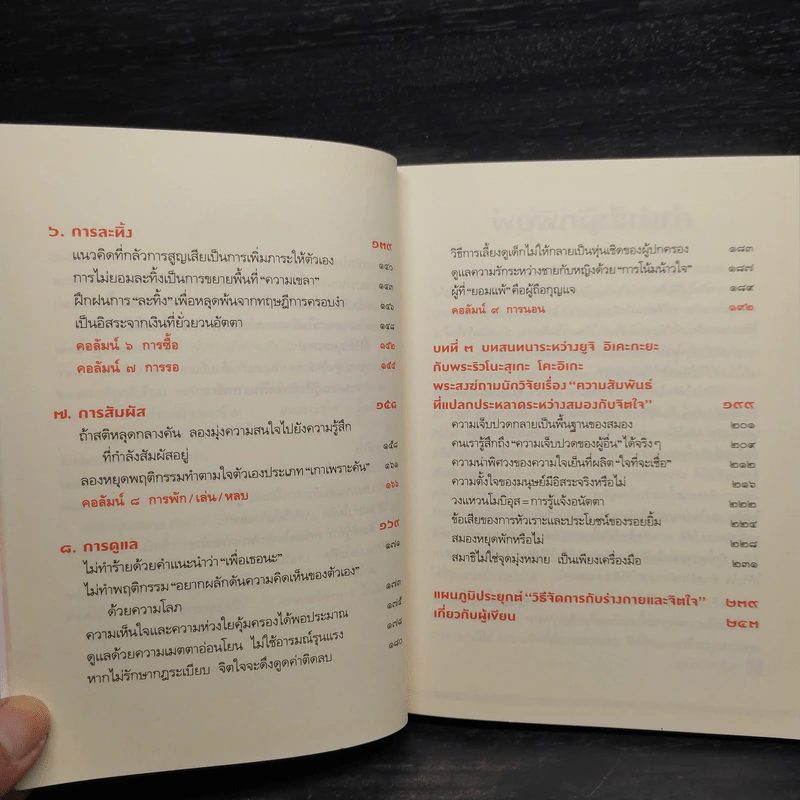 ๖. การละทิ้ง ๑๓๙
แนวคิดที่กลัวการสูญเสียเป็นการเพิ่มภาระให้ตัวเอง ๑๔๐
การไม่ยอมละทิ้งเป็นการขยายพื้นที่ “ความเขลา” ๑๔๓
ฝึกฝนการ “ละทิ้ง” เพื่อหลุดพ้นจากทฤษฎีการครอบงำ ๑๔๖
เป็นอิสระจากเงินที่ยั่วยวนอัตตา ๑๔๘
คอลัมน์ ๖ การซื้อ ๑๕๒
คอลัมน์ ๗ การรอ
๗. การสัมผัส ๑๕๘
ถ้าสติหลุดกลางคัน ลองมุ่งความสนใจไปยังความรู้สึก
ที่กำลังสัมผัสอยู่ ๑๕๘
ลองหยุดพฤติกรรมทำตามใจตัวเองประเภท “เกาเพราะคัน”
คอลัมน์ ๘ การพัก/เล่น/หลบ ๑๖๖
๘. การดูแล ๑๖๙
ไม่ทำร้ายด้วยคำแนะนำว่า “เพื่อเธอนะ” ๑๗๑
ไม่ทำพฤติกรรม “อยากผลักดันความคิดเห็นของตัวเอง”
ด้วยความโลภ ๑๗๓
ความเห็นใจและความห่วงใยคุ้มครองได้พอประมาณ ๑๗๕
ดูแลด้วยความเมตตาอ่อนโยน ไม่ใช้อารมณ์รุนแรง ๑๗๘
หากไม่รักษากฎระเบียบ จิตใจจะดึงดูดค่าติดลบ ๑๘๐
วิธีการเลี้ยงดูเด็กไม่ให้กลายเป็นหุ่นเชิดของผู้ปกครอง ๑๘๓
ดูแลความรักระหว่างชายกับหญิงด้วย “การโน้มน้าวใจ” ๑๘๗
ผู้ที่ “ยอมแพ้” คือผู้ถือกุญแจ ๑๘๙
คอลัมน์ ๙ การนอน ๑๙๒
บทที่ ๓ บทสนทนาระหว่างยูจิ อิเคะกะยะ
กับพระริวโนะสุเกะ โคะอิเกะ
พระสงฆ์ถามนักวิจัยเรื่อง “ความสัมพันธ์
ที่แปลกประหลาดระหว่างสมองกับจิตใจ” ๑๙๙
ความเจ็บปวดกลายเป็นพื้นฐานของสมอง ๒๐๑
คนเรารู้สึกถึง “ความเจ็บปวดของผู้อื่น” ได้จริงๆ ๒๐๙
ความน่าพิศวงของความใจเย็นที่ผลิต “ใจที่จะเชื่อ” ๒๑๒
ความตั้งใจของมนุษย์มีอิสระจริงหรือไม่ ๒๑๖
วงแหวนโมบิอุส = การรู้แจ้งอนัตตา ๒๒๒
ข้อเสียของการหัวเราะและประโยชน์ของรอยยิ้ม ๒๒๔
สมองหยุดพักหรือไม่ ๒๒๘
สมาธิไม่ใช่จุดมุ่งหมาย เป็นเพียงเครื่องมือ ๒๓๑
แผนภูมิประยุกต์ “วิธีจัดการกับร่างกายและจิตใจ” ๒๓๙
เกี่ยวกับผู้เขียน ๒๔๓